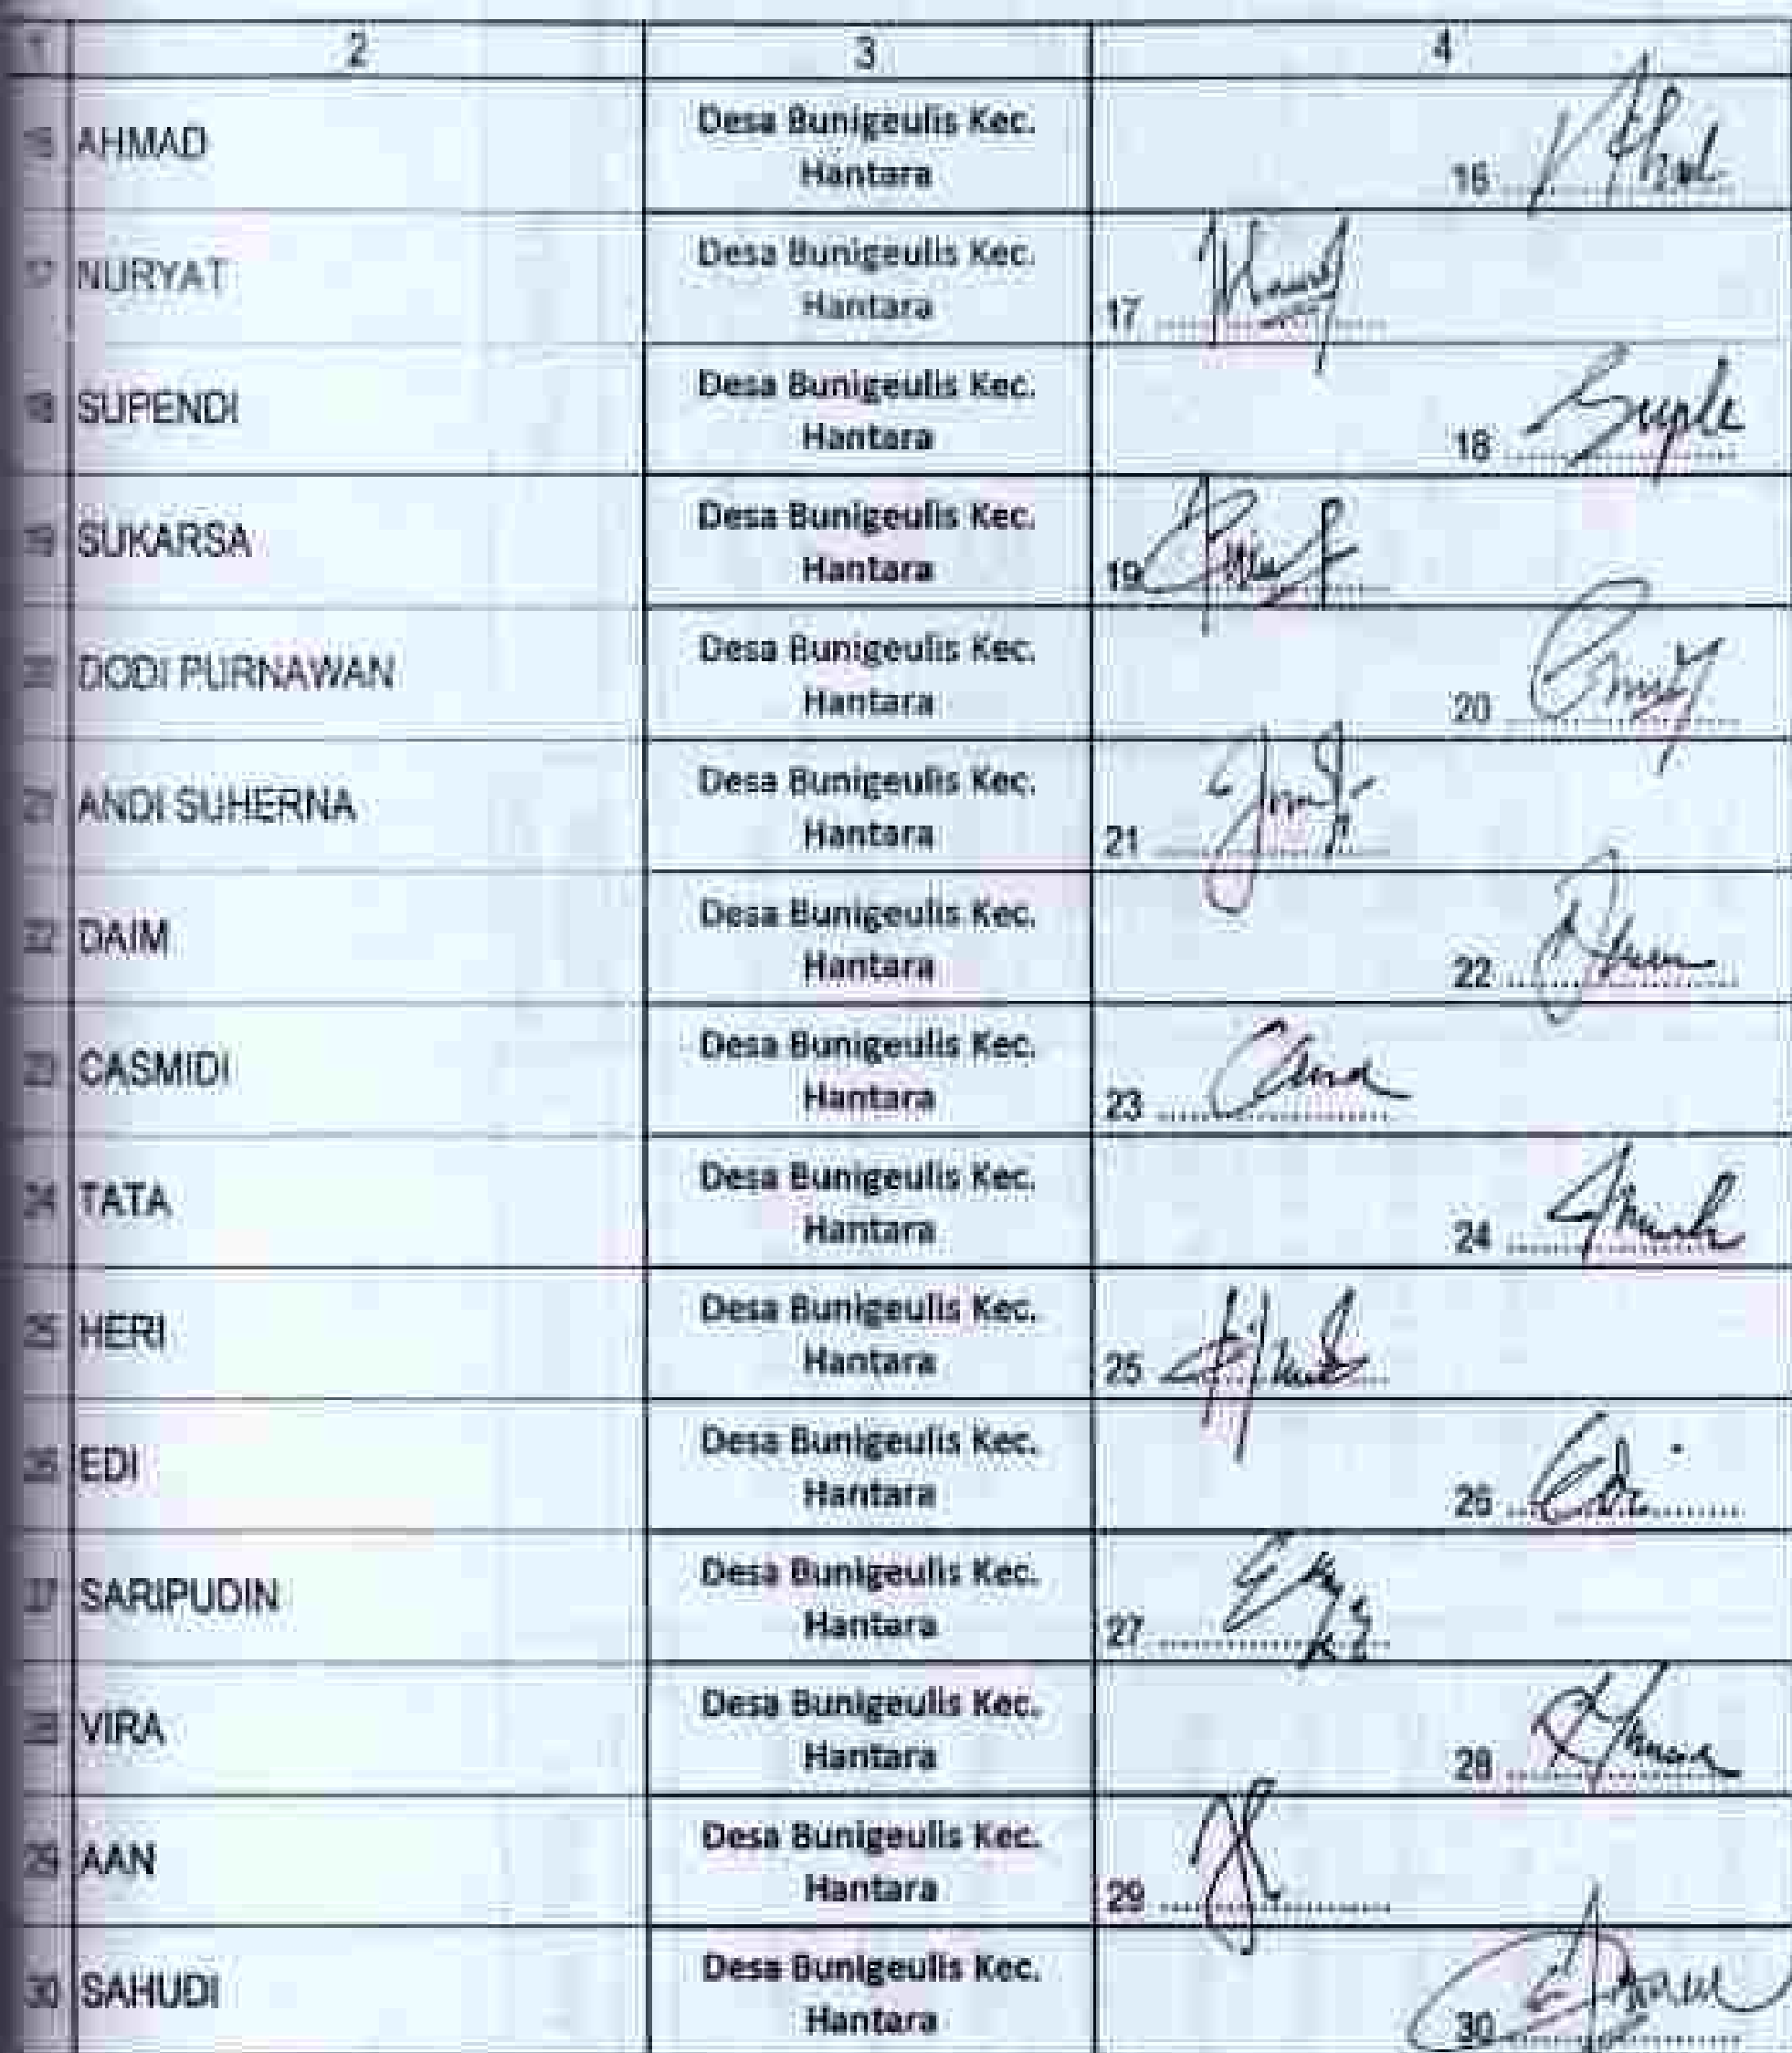 1 2 3 4
16 AHMAD Desa Bunigeulis Kec.
Hantara 16
17 NURYAT Desa Bunigeulis Kec.
Hantara 17
18 SUPENDI Desa Bunigeulis Kec.
Hantara 18
19 SUKARSA Desa Bunigeulis Kec.
Hantara 19
20 DODI PURNAWAN Desa Bunigeulis Kec.
Hantara 20
21 ANDI SUHERNA Desa Bunigeulis Kec.
Hantara 21
22 DAIM Desa Bunigeulis Kec.
Hantara 22
23 CASMIDI Desa Bunigeulis Kec.
Hantara 23
24 TATA Desa Bunigeulis Kec.
Hantara 24
25 HERI Desa Bunigeulis Kec.
Hantara 25
26 EDI Desa Bunigeulis Kec.
Hantara 26 Edi
27 SARIPUDIN Desa Bunigeulis Kec.
Hantara 27
28 VIRA Desa Bunigeulis Kec.
Hantara 28
29 AAN Desa Bunigeulis Kec.
Hantara 29
30 SAHUDI Desa Bunigeulis Kec.
Hantara 30